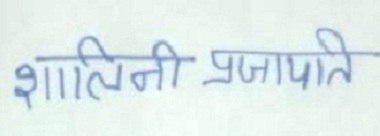 शालिनी प्रजापति